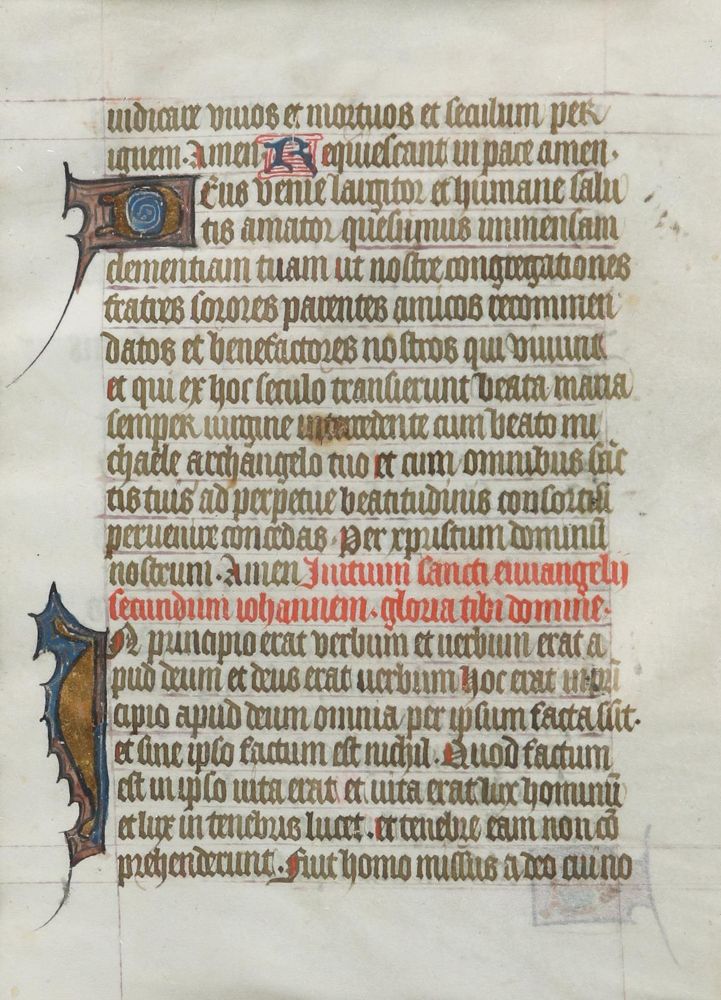 iudicare viuos et mortuos et seculum per
ignem. Amen. Requiescant in pace amen.
Deus venie largitor et humane salu
tis amator quesumus immensam
clementiam tuam ut nostre congregationes
fratres sorores parentes amicos recommen
datos et benefactores nostros qui viuunt
et qui ex hoc seculo transierunt beata maria
semper uirgine intercedente cum beato mi
chaele archangelo tuo et cum omnibus sāc
tis tuis ad perpetue beatitudinis consortiū
peruenire concedas. Per xpristum dominū
nostrum. Amen Inicium sancti euuangelij
secundum iohannem. gloria tibi domine.
IN principio erat verbum et uerbum erat a
pud deum et deus erat uerbum hoc erat in prī
cipio apud deum omnia per ipsum facta sūt.
et sine ipso factum est nichil. Quod factum
est in ipso uita erat et uita erat lux hominū
et lux in tenebris lucet. et tenebre eam non cō
prehenderunt. Fuit homo missus a deo cui no